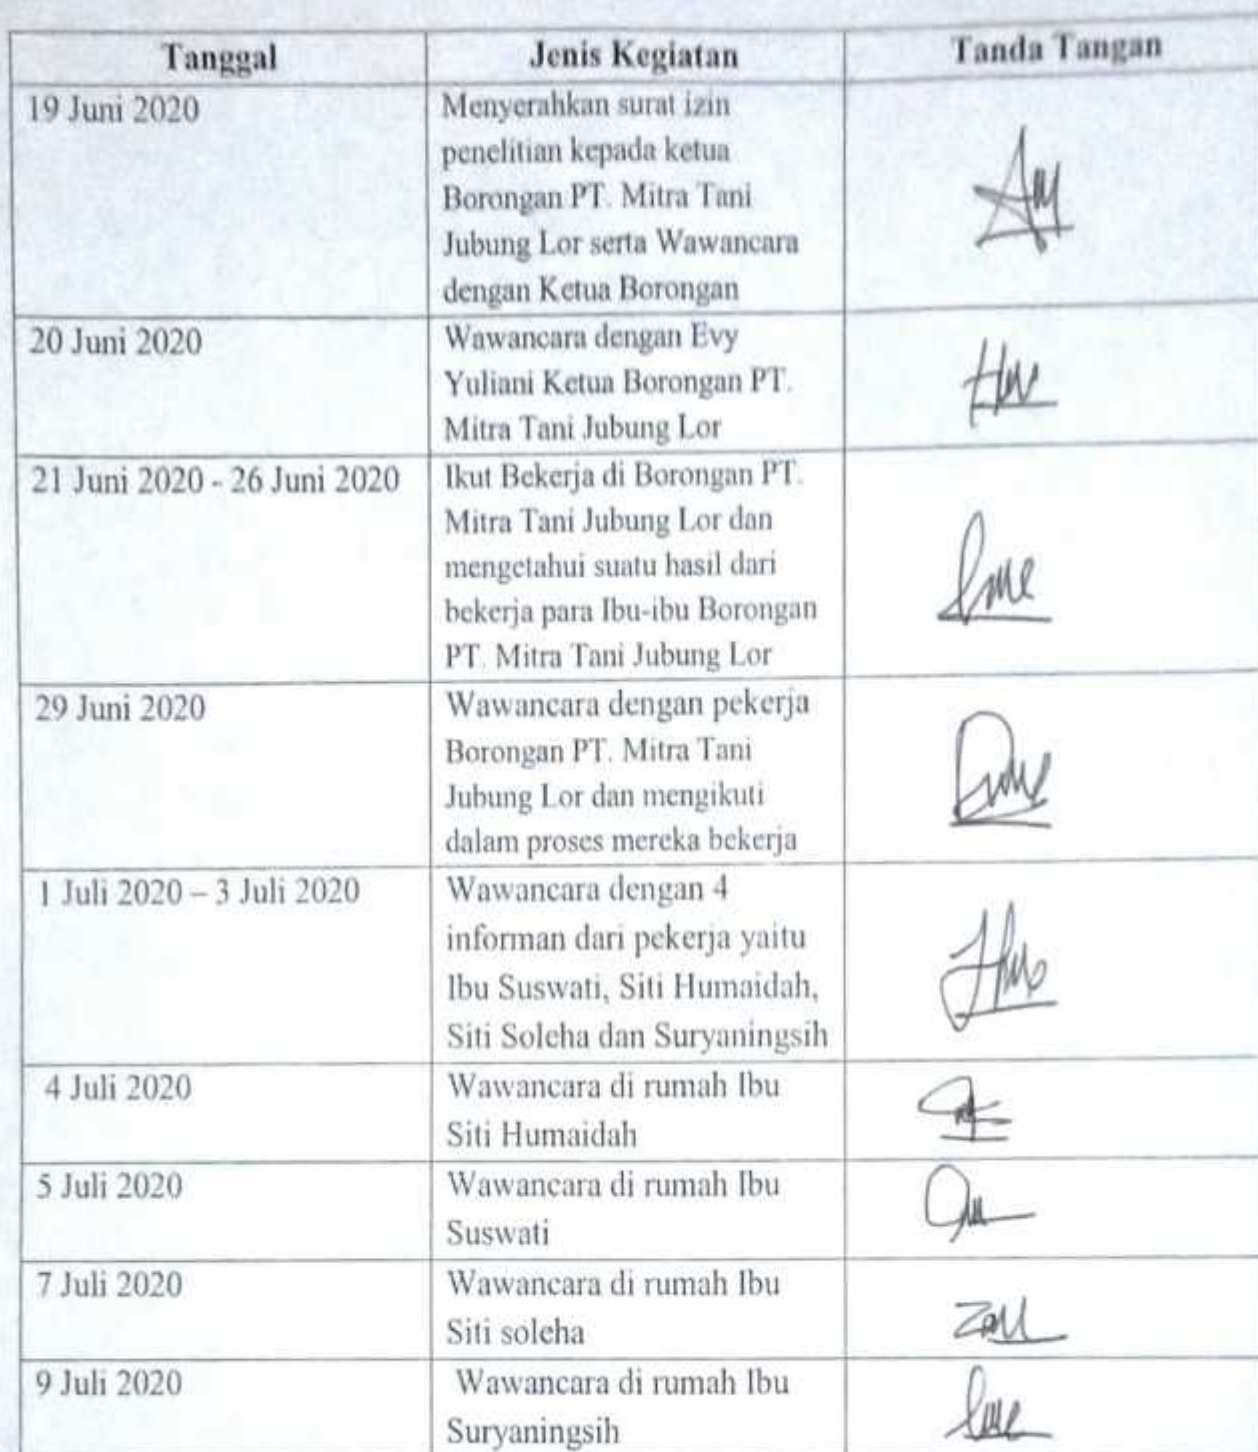 Tanggal Jenis Kegiatan Tanda Tangan
19 Juni 2020 Menyerahkan surat izin
penelitian kepada ketua
Borongan PT. Mitra Tani
Jubung Lor serta Wawancara
dengan Ketua Borongan
20 Juni 2020 Wawancara dengan Evy
Yuliani Ketua Borongan PT.
Mitra Tani Jubung Lor
21 Juni 2020 - 26 Juni 2020 Ikut Bekerja di Borongan PT.
Mitra Tani Jubung Lor dan
mengetahui suatu hasil dari
bekerja para Ibu-ibu Borongan
PT. Mitra Tani Jubung Lor
29 Juni 2020 Wawancara dengan pekerja
Borongan PT. Mitra Tani
Jubung Lor dan mengikuti
dalam proses mereka bekerja
1 Juli 2020 – 3 Juli 2020 Wawancara dengan 4
informan dari pekerja yaitu
Ibu Suswati, Siti Humaidah,
Siti Soleha dan Suryaningsih
4 Juli 2020 Wawancara di rumah Ibu
Siti Humaidah
5 Juli 2020 Wawancara di rumah Ibu
Suswati
7 Juli 2020 Wawancara di rumah Ibu
Siti soleha
9 Juli 2020 Wawancara di rumah Ibu
Suryaningsih